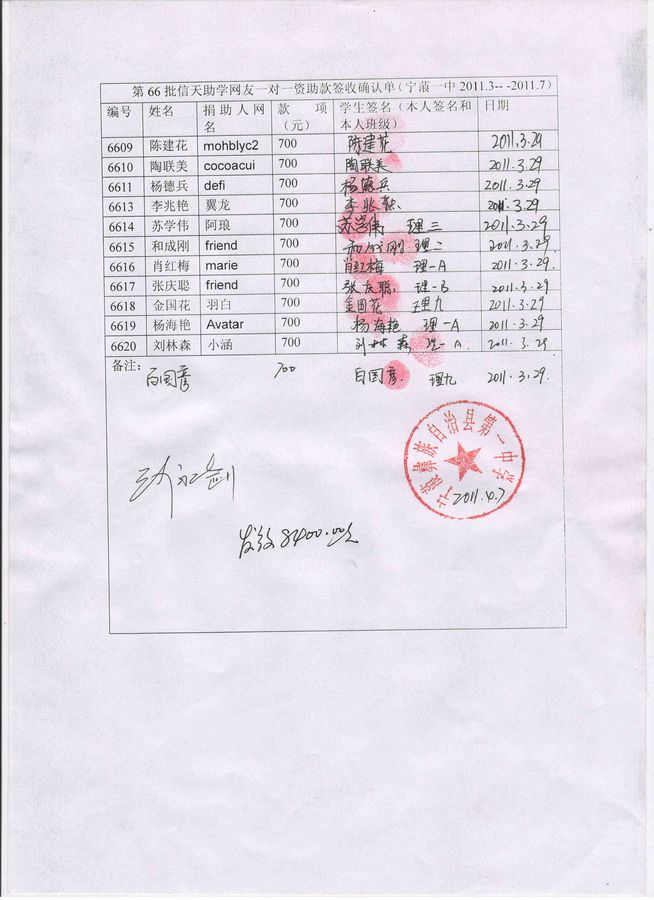 第66批信天助学网友一对一资助款签收确认单（宁蒗一中2011.3-- -2011.7）
编号 姓名 捐助人网名 款项（元） 学生签名（本人签名和本人班级） 日期
6609 陈建花 mohblyc2 700 陈建花 2011.3.29
6610 陶联美 cocoacui 700 陶联美 2011.3.29
6611 杨德兵 defi 700 杨德兵 2011.3.29
6613 李兆艳 翼龙 700 李兆艳 2011.3.29
6614 苏学伟 阿琅 700 苏学伟 理三 2011.3.29
6615 和成刚 friend 700 和成刚 理二 2011.3.29
6616 肖红梅 marie 700 肖红梅 理一A 2011.3.29
6617 张庆聪 friend 700 张庆聪 理一B 2011.3.29
6618 金国花 羽白 700 金国花 理九 2011.3.29
6619 杨海艳 Avatar 700 杨海艳 理一A 2011.3.29
6620 刘林森 小涵 700 刘林森 理一A 2011.3.29
备注：
白国彦 700 白国彦 理九 2011.3.29
宁蒗彝族自治县第一中学
2011.4.7
发放8400.00元